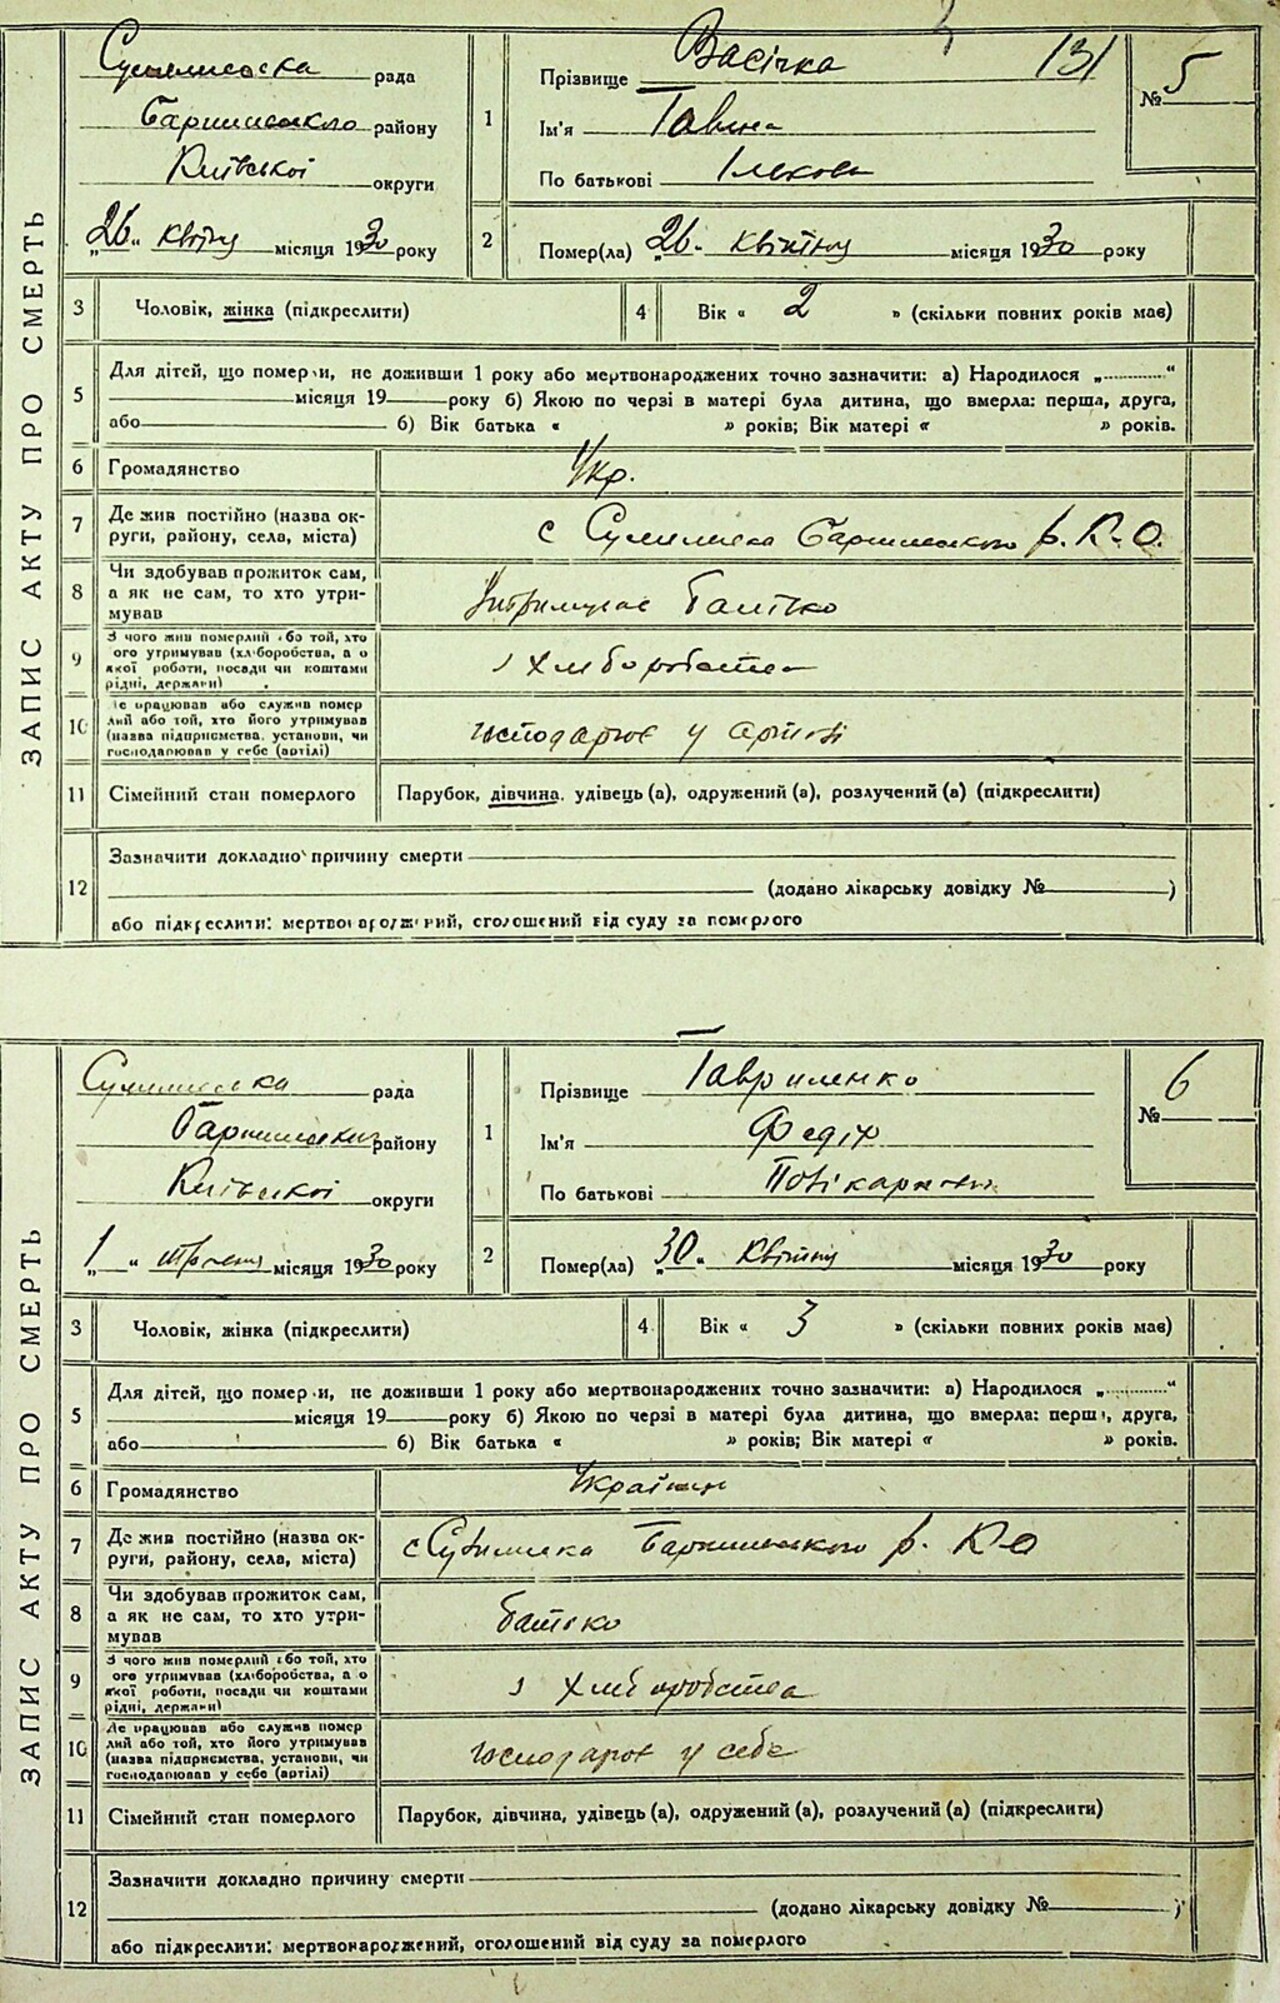 ЗАПИС АКТУ ПРО СМЕРТЬ
рада
Баришівського району
Київської округи
„26“ квітня місяця 1930 року
1
Прізвище Васічка 131
Ім'я
По батькові
№ 5
2
Помер(ла) „26“ квітня місяця 1930 року
3
Чоловік, жінка (підкреслити)
4
Вік « 2 » (скільки повних років мав)
5
Для дітей, що померли, не доживши 1 року або мертвонароджених точно зазначити: а) Народилося „ “
місяця 19 року б) Якою по черзі в матері була дитина, що вмерла: перша, друга,
або б) Вік батька « » років; Вік матері « » років.
6
Громадянство
Укр.
7
Де жив постійно (назва ок-
руги, району, села, міста)
с Баришівського р. К. О.
8
Чи здобував прожиток сам,
а як не сам, то хто утри-
мував
Утримував батько
9
З чого жив померлий або той, хто
ого утримував (хліборобства, а о
якої роботи, посади чи коштами
рідні, держави)
з хліборобства
10
Де працював або служив помер
лий або той, хто його утримував
(назва підприємства, установи, чи
господарював у себе (артілі)
господарює у артілі
11
Сімейний стан померлого
Парубок, дівчина, удівець (а), одружений (а), розлучений (а) (підкреслити)
12
Зазначити докладно причину смерти
(додано лікарську довідку № )
або підкреслити: мертвонароджений, оголошений від суду за померлого
ЗАПИС АКТУ ПРО СМЕРТЬ
рада
району
Київської округи
„1“ травня місяця 1930 року
1
Прізвище Гавриленко
Ім'я Федір
По батькові Полікарпович
№ 6
2
Помер(ла) „30“ квітня місяця 1930 року
3
Чоловік, жінка (підкреслити)
4
Вік « 3 » (скільки повних років мав)
5
Для дітей, що померли, не доживши 1 року або мертвонароджених точно зазначити: а) Народилося „ “
місяця 19 року б) Якою по черзі в матері була дитина, що вмерла: перша, друга,
або б) Вік батька « » років; Вік матері « » років.
6
Громадянство
Українец
7
Де жив постійно (назва ок-
руги, району, села, міста)
с Баришівського р. К. О
8
Чи здобував прожиток сам,
а як не сам, то хто утри-
мував
батько
9
З чого жив померлий або той, хто
ого утримував (хліборобства, а о
якої роботи, посади чи коштами
рідні, держави)
з хліборобства
10
Де працював або служив помер
лий або той, хто його утримував
(назва підприємства, установи, чи
господарював у себе (артілі)
господарює у себе
11
Сімейний стан померлого
Парубок, дівчина, удівець (а), одружений (а), розлучений (а) (підкреслити)
12
Зазначити докладно причину смерти
(додано лікарську довідку № )
або підкреслити: мертвонароджений, оголошений від суду за померлого